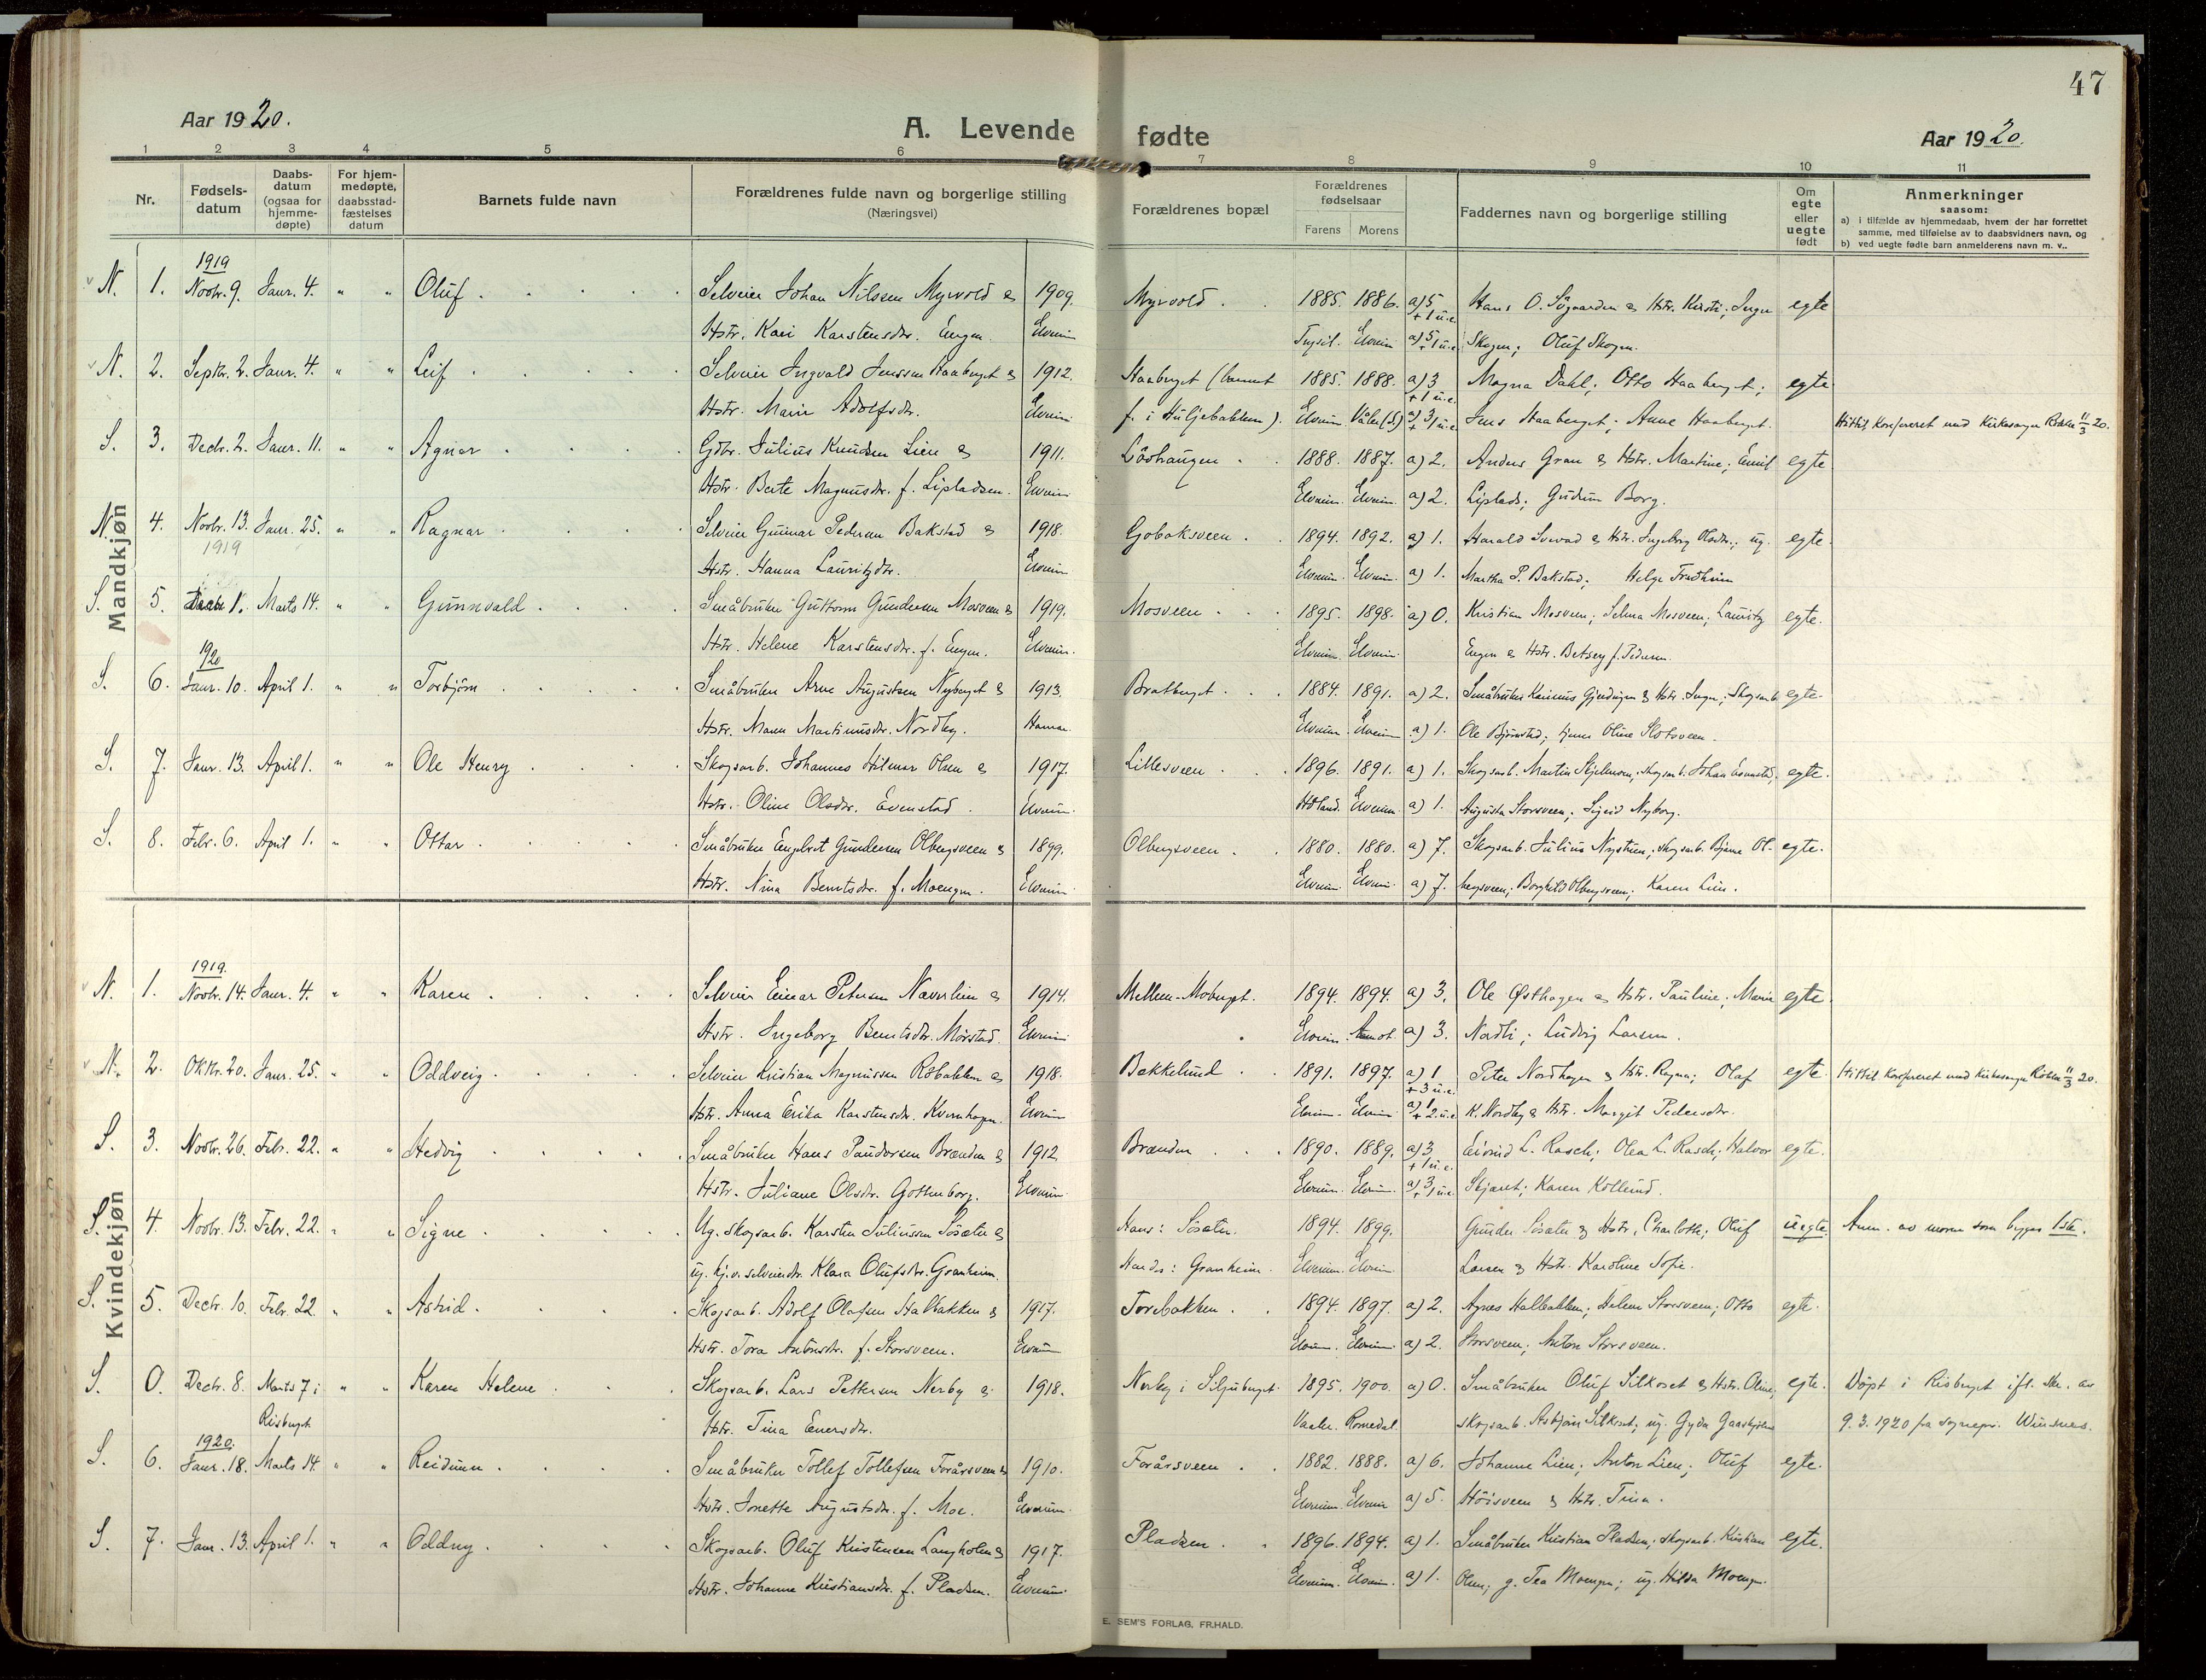 47
Aar 1920.
A. Levende fødte
Aar 1920.
1 2 3 4 5 6 7 8 9 10 11
Nr.
Fødsels-
datum
Daabs-
datum
(ogsaa for
hjemme-
døpte)
For hjem-
medøpte,
daabsstad-
fæstelses
datum
Barnets fulde navn
Forældrenes fulde navn og borgerlige stilling
(Næringsvei)
Forældrenes bopæl
Forældrenes
fødselsaar
Farens Morens
Faddernes navn og borgerlige stilling
Om
egte
eller
uegte
født
Anmerkninger
saasom:
a) i tilfælde av hjemmedaab, hvem der har forrettet
samme, med tilføielse av to daabsvidners navn, og
b) ved uegte fødte barn anmelderens navn m. v..
Mandkjøn
1919
N. 1. Novbr. 9. Janr. 4. " " Oluf Selveier Johan Nilssen Myrvold & 1909. Myrvold 1885. 1886. a) 5 + 1 u.e. Hans O. Sögaarden & Hstr. Kirsti; Inger egte
Hstr. Kari Karstensdtr. Engen. Elverum Trysil. Elverum a) 5 + 1 u.e. Skogen; Oluf Skogen.
N. 2. Septbr. 2. Janr. 4. " " Leif Selveier Ingvald Jenssen Haaberget & 1912. Haaberget (barnet 1885. 1888. a) 3 + 1 u.e. Magna Dahl; Otto Haaberget; egte
Hstr. Marie Adolfsdtr. Elverum f. i Huljebakken). Elverum Våler (S.) a) 3 + 1 u.e. Jens Haaberget; Anne Haaberget. Hittil konfereret med kirkesanger 11/3 20.
S. 3. Decbr. 2. Janr. 11. " " Agnar Gdbr. Julius Knudsen Lien & 1911. Lövhaugen 1888. 1887. a) 2. Anders Gran & Hstr. Martine; Emil egte
Hstr. Berte Magnusdtr. f. Lipladsen. Elverum Elverum. Elverum. a) 2. Liplads; Gudrun Borg.
N. 4. Novbr. 13. Janr. 25. " " Ragnar Selveier Gunnar Pedersen Bakstad & 1918. Gobaksveen 1894. 1892. a) 1. Harald & Hstr. Ingeborg Olsdtr.; ug. egte.
1919 Hstr. Hanna Lauritzdtr. Elverum Elverum. Elverum. a) 1. Martha P. Bakstad; Helge
S. 5. Decbr. 1. Marts 14. " " Gunnvald Småbruker Guttorm Gundersen Mosveen & 1919. Mosveen 1895. 1898. a) 0. Kristian Mosveen; Selma Mosveen; Lauritz egte.
Hstr. Helene Karstensdtr. f. Engen. Elverum. Elverum. Elverum. Engen & Hstr. Betsey f. Pedersen.
1920
S. 6. Janr. 10. April 1. " " Torbjörn Småbruker Arne Augustsen Nyberget & 1913. Bratberget 1884. 1891. a) 2. Småbruker Karinus & Hstr. Inger; Skogsarb. egte.
Hstr. Maren Martinusdtr. Nordby. Hamar Elverum. Elverum a) 1. Ole Björnstad; tjener Oline Slotsveen.
S. 7. Janr. 13. April 1. " " Ole Henry Skogsarb. Johannes Hilmar Olsen & 1917. Lillesveen 1896. 1891. a) 1. Skogsarb. Martin; skogsarb. Johan Evenstad; egte.
Hstr. Oline Olsdtr. Evenstad. Elverum Höland. Elverum a) 1. Augusta Storsveen; Sigrid Nyborg.
S. 8. Febr. 6. April 1. " " Ottar Småbruker Engebret Gundersen Olbergsveen & 1899. Olbergsveen 1880. 1880. a) 7. Skogsarb. Julius Nystuen; skogsarb. Bjarne Ol- egte.
Hstr. Nina Berntsdtr. f. Moengen. Elverum Elverum Elverum. a) 7. bergsveen; Borghild Olbergsveen; Karen Lien.
Kvindekjøn
1919.
N. 1. Novbr. 14. Janr. 4. " " Karen Selveier Einar Petersen Næverlien & 1914. Mellem-Moberget. 1894. 1894. a) 3. Ole Østhagen & Hstr. Pauline; Marie egte
Hstr. Ingeborg Berntsdtr. Mörstad. Elverum Elverum. Aamot a) 3. Nordli; Ludvig Larsen.
N. 2. Oktbr. 20. Janr. 25. " " Oddveig Selveier Kristian Magnussen Röbakken & 1918. Bekkelund 1891. 1897. a) 1 + 3 u.e. Peter Nordhagen & Hstr. Regna; Olaf egte. Hittil konfereret med kirkesanger 11/3 20.
Hstr. Anna Erika Karstensdtr. Kvernhagen. Elverum Elverum. Elverum a) 1 + 2 u.e. K. Nordby & Hstr. Margit Pedersdtr.
S. 3. Novbr. 26. Febr. 22. " " Hedvig Småbruker Hans Paudersen Brænden & 1912 Brænden 1890. 1889. a) 3 + 1 u.e. Eivind L. Rasch; Olea L. Rasch; Halvor egte.
Hstr. Juliane Olsdtr. Gottenborg. Elverum Elverum. Elverum. a) 3 + 1 u.e. Skjæret; Karen Kollerud.
S. 4. Novbr. 13. Febr. 22. " " Signe Ug. skogsarb. Karsten Juliussen Sösæter & Hans: Sösæter. 1894. 1899. Gunder Sösæter & Hstr. Charlotte; Oluf uegte. Anm. av moren som begges 1ste.
ug. hj.v. selveierdtr. Klara Olufsdtr. Granheim. Hendes: Granheim. Elverum. Elverum Larsen & Hstr. Karoline Sofie.
S. 5. Decbr. 10. Febr. 22. " " Astrid Skogsarb. Adolf Olafsen Halbakken & 1917. Torebakken 1894. 1897. a) 2. Agnes Halbakken; Helene Storsveen; Otto egte.
Hstr. Tora Antonsdtr. f. Storsveen. Elverum Elverum. Elverum a) 2. Storsveen; Anton Storsveen.
S. 0. Decbr. 8. Marts 7 i " " Karen Helene Skogsarb. Lars Pettersen Nerby & 1918. Nerby i Siljuberget. 1895. 1900. a) 0. Småbruker Oluf Silkoset & Hstr. Oline; egte. Döpt i Risberget ifl. skr. av
Risberget Hstr. Tina Enersdtr. Vaaler. Romedal. skogsarb. Asbjörn Silkoset; ug. Gyda 9. 3. 1920 fra sognepr. Winsnes.
1920.
S. 6. Janr. 18. Marts 14. " " Reidunn Småbruker Tollef Tollefsen Forårsveen & 1910. Forårsveen 1882. 1888. a) 6. Johanne Lien; Anton Lien; Oluf egte.
Hstr. Jonette Augustsdtr. f. Moe. Elverum. Elverum. Elverum a) 5. Höisveen & Hstr. Tina.
S. 7. Janr. 13. April 1. " " Oddny Skogsarb. Oluf Kristensen Langholen & 1917. Pladsen 1896. 1894. a) 1. Småbruker Kristian Pladsen; skogsarb. Kristian egte.
Hstr. Johanne Kristiansdtr. f. Pladsen. Elverum. Elverum. Elverum. a) 1. Olsen; g. Tea Moengen; ug. Hilda Moengen.
E. SEM'S FORLAG, FR.HALD.